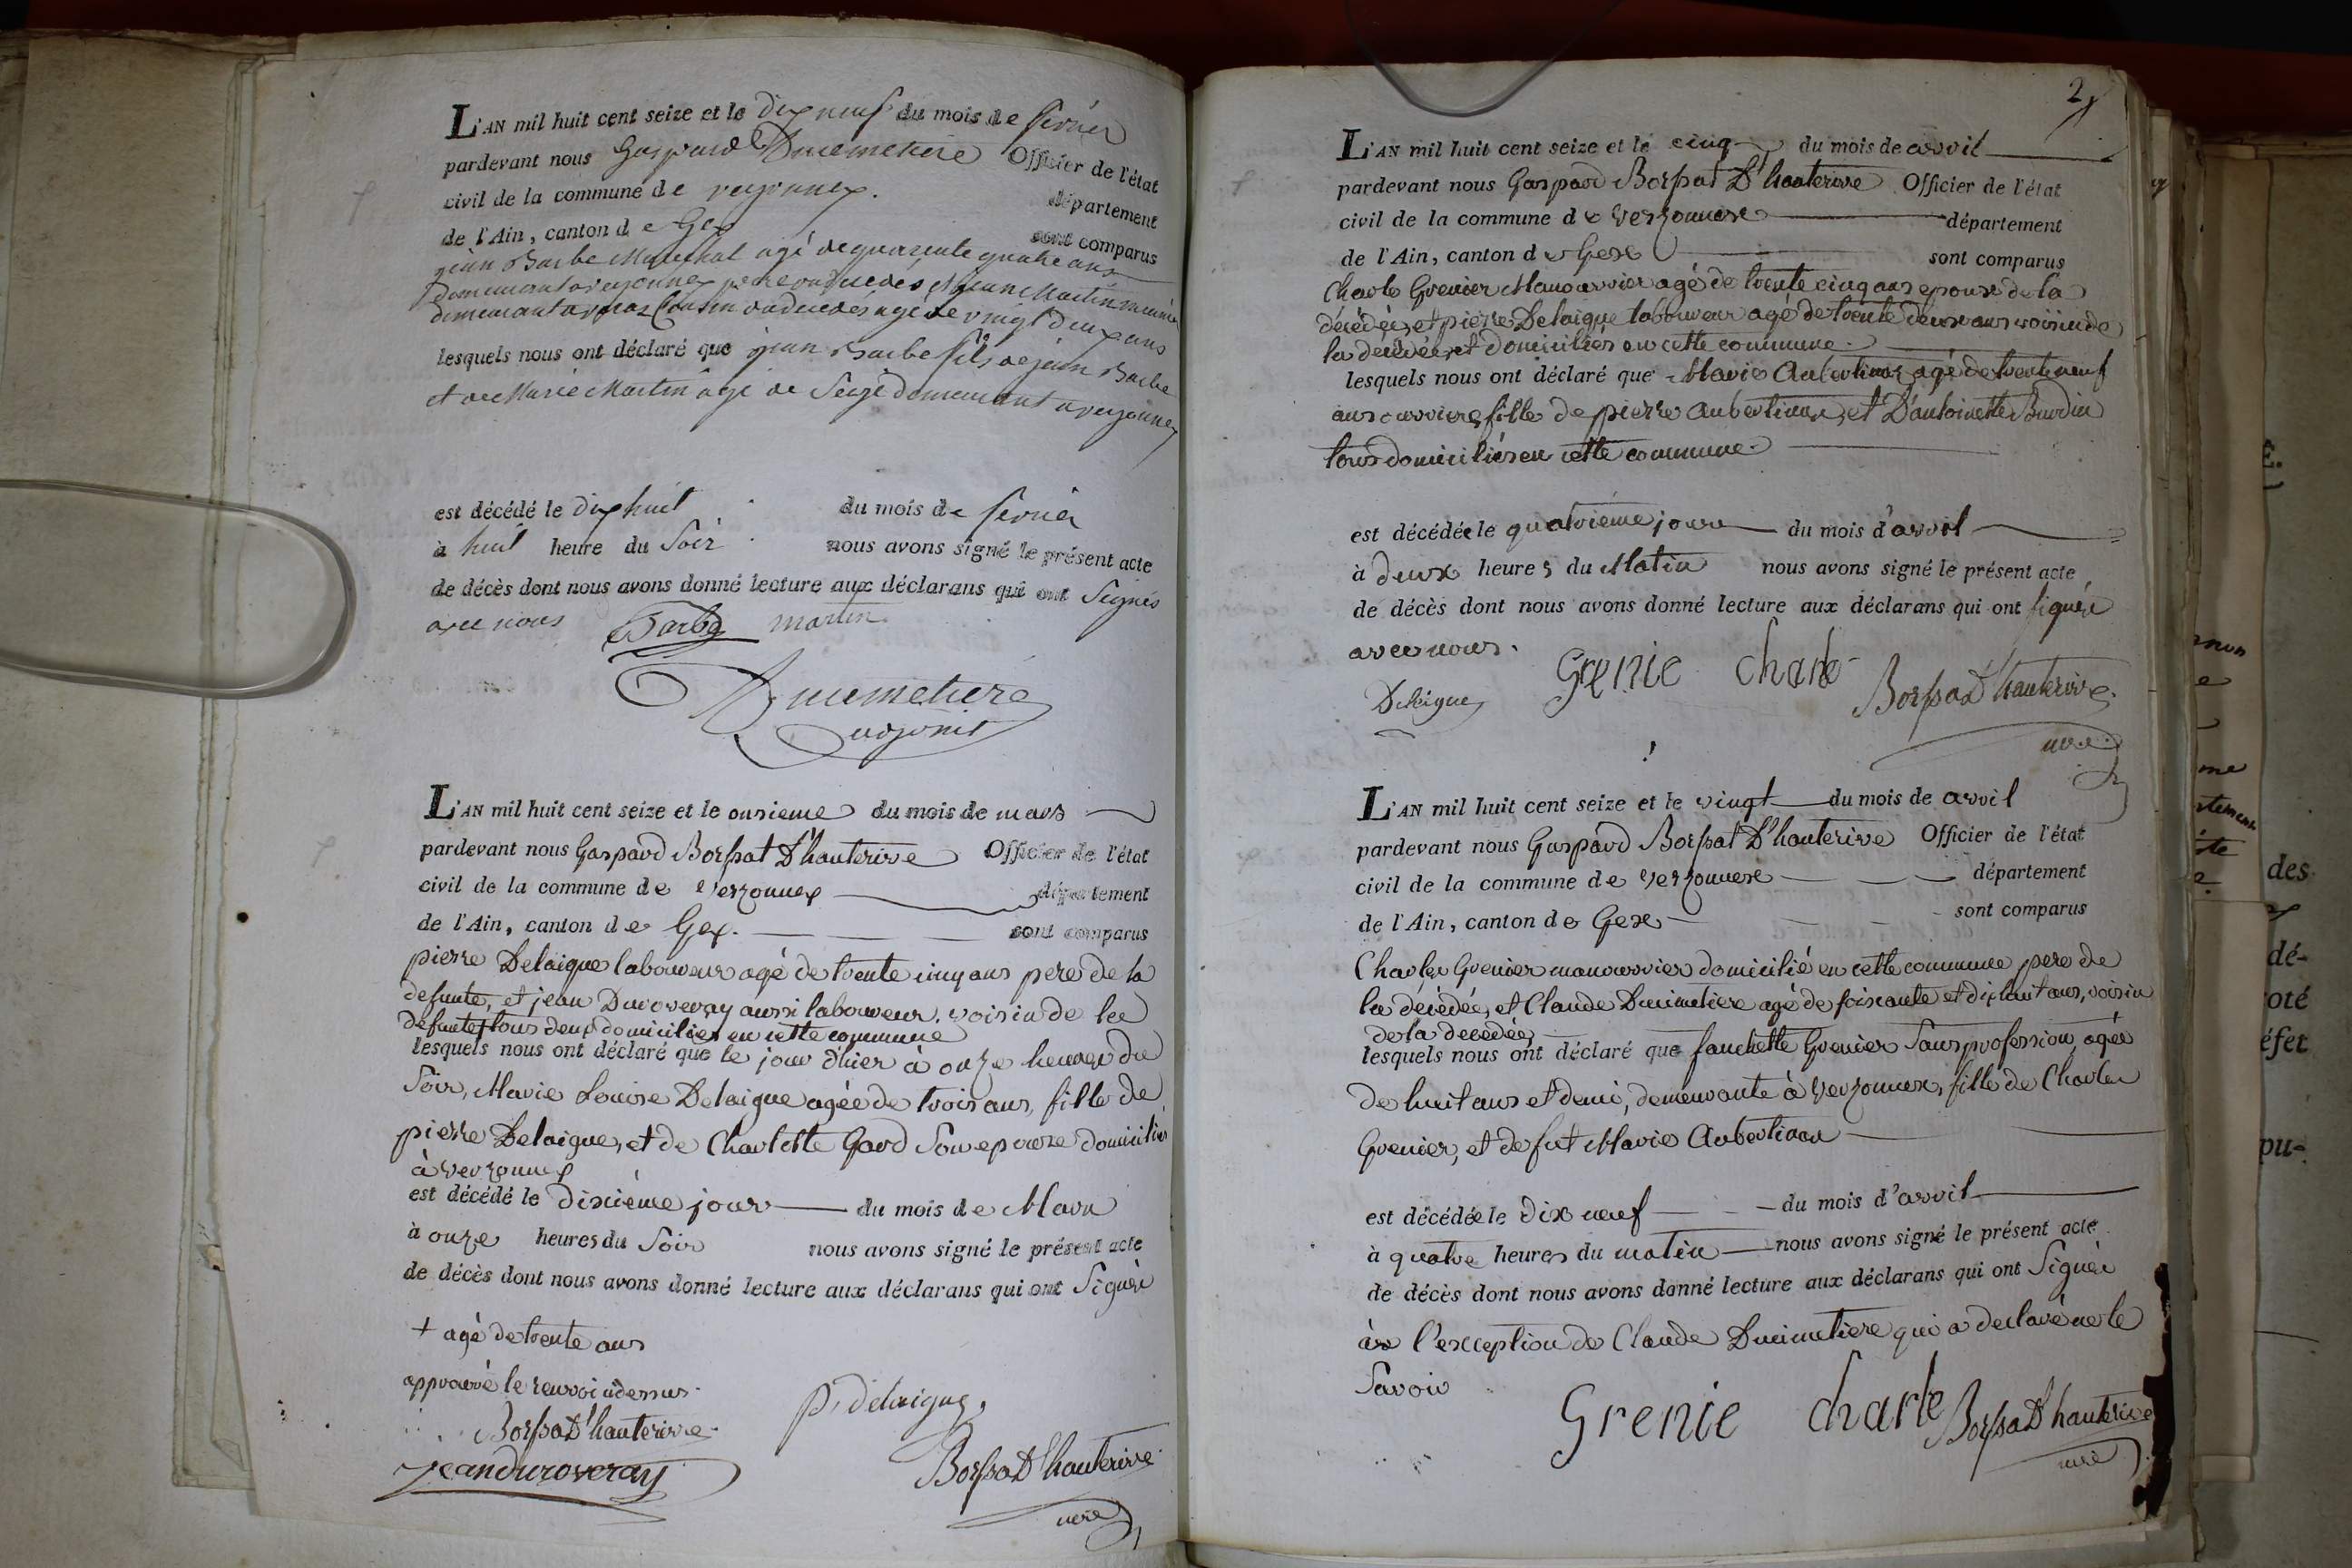 L'AN mil huit cent seize et le dix neuf du mois de fevrier
pardevant nous Gaspard Ducimetiere Officier de l'état
civil de la commune de versonnex. département
de l'Ain, canton de Gex sont comparus
jean Barbe Marechal agé de quarante quatre ans
demeurant a versonnex pere du decedés et jean Martin
demeurant a Cousin du decedés agé de vingt deux ans
lesquels nous ont déclaré que jean Barbe fils de jean Barbe
et de Marie Martin agé de Seize demeurant a versonnex
est décédé le dix huit du mois de fevrier
à huit heure du Soir nous avons signé le présent acte
de décès dont nous avons donné lecture aux déclarans qui ont Signés
avec nous Barbe martin
Ducimetiere
adjoint
L'AN mil huit cent seize et le onsieme du mois de mars
pardevant nous Gaspard Borssat D'hauterive Officier de l'état
civil de la commune de Verzonnex département
de l'Ain, canton de Gex. sont comparus
pierre Delaigue laboureur agé de trente cinq ans pere de la
defunte, et jean Duroveray aussi laboureur, voisin de la
defunte + tous deux domiciliés en cette commune
lesquels nous ont déclaré que le jour d'hier à onze heures du
Soir, Marie Louise Delaigue agée de trois ans, fille de
pierre Delaigue, et de Charlotte Gard Son epouse domiciliés
à Verzonnex
est décédé le dixième jour du mois de Mars
à onze heures du Soir nous avons signé le présent acte
de décès dont nous avons donné lecture aux déclarans qui ont Signés
+ agé de trente ans
approuvé le renvoi cidessus.
Borssat D'hauterive p, delaigue,
jean duroveray Borssat D'hauterive
mere
2
L'AN mil huit cent seize et le cinq du mois de avril
pardevant nous Gaspard Borssat D'hauterive Officier de l'état
civil de la commune de Verzonnex département
de l'Ain, canton de Gex sont comparus
Charle Grenier Manouvrier agé de trente cinq ans epoux de la
décédée, et pierre Delaigue laboureur agé de trente deux ans voisin de
la décédée, et domiciliés en cette commune.
lesquels nous ont déclaré que Marie Aubertinax agé de trente neuf
ans ouvriere, fille de pierre Aubertinax, et D'antoinette Burdin
tous domiciliés en cette commune.
est décédée le quatrième jour du mois d'avril
à deux heures du Matin nous avons signé le présent acte
de décès dont nous avons donné lecture aux déclarans qui ont signés
avec nous.
Delaigue Grenie charle Borssat D'hauterive
mere
L'AN mil huit cent seize et le vingt du mois de avril
pardevant nous Gaspard Borssat D'hauterive Officier de l'état
civil de la commune de Verzonnex département
de l'Ain, canton de Gex sont comparus
Charles Grenier manouvrier domicilié en cette commune pere de
la décédée, et Claude Ducimetiere agé de soixante et dix huit ans, voisin
de la decedée,
lesquels nous ont déclaré que fanchette Grenier Sans profession, agée
de huit ans et demi, demeurante à Verzonnex, fille de Charles
Grenier, et de fut Marie Aubertinax
est décédée le dix neuf du mois d'avril
à quatre heures du matin nous avons signé le présent acte
de décès dont nous avons donné lecture aux déclarans qui ont Signés
à l'exception de Claude Ducimetiere qui a declaré ne le
Savoir
Grenie charle Borssat D'hauterive
mere
des
dé-
oté
éfet
pu-